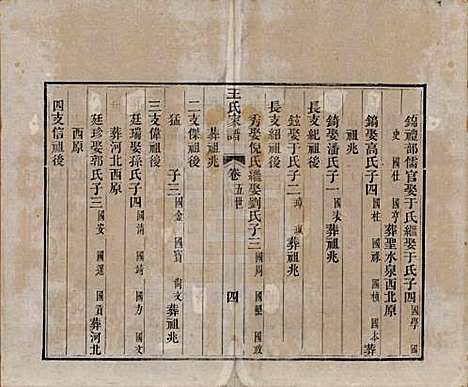 鐫禮部儒官娶于氏繼娶于氏子四 國學 國
史 國仕 國亨 葬聖水泉西北原
鎬娶高氏子四 國柱 國祿 國楨 國本 葬
祖兆
錡娶潘氏子一 國 葬祖兆
長支紀祖後
鉉娶于氏子二 葬祖兆
長支紹祖後
王氏家譜 卷 五世 四
秀娶倪氏繼娶劉氏子三 國周 國璽 國政
葬祖兆
二支傑祖後
猛 子三 國金 國寶 尙文 葬祖兆
三支偉祖後
廷瑞娶孫氏子四 國清 國靖 國方 國文
葬河北西原
廷珍娶郭氏子三 國安 國選 國首 葬河北
西原
四支信祖後